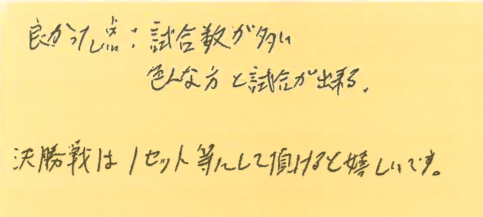 良かった点：試合数が多い
色んな方と試合が出来る。
決勝戦は1セット等にして頂けると嬉しいです。